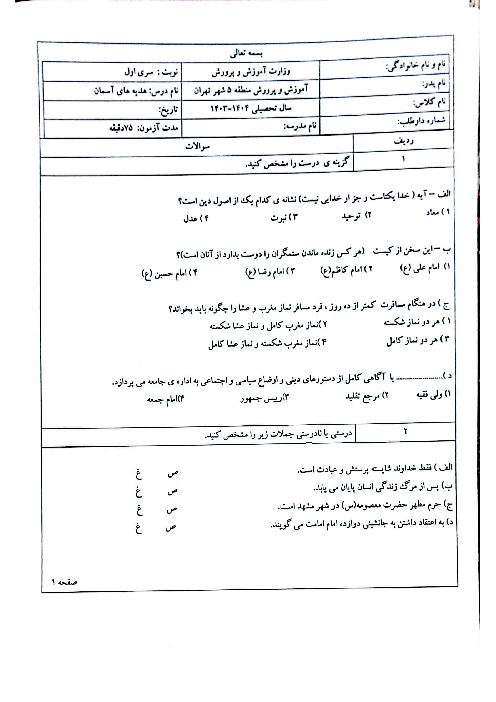 بسمه تعالی
نام و نام خانوادگی:
وزارت آموزش و پرورش
نوبت : سری اول
نام پدر:
آموزش و پرورش منطقه ۵ شهر تهران
نام درس: هدیه های آسمان
نام کلاس:
سال تحصیلی ۱۴۰۴-۱۴۰۳
تاریخ:
شماره داوطلب:
نام مدرسه:
مدت آزمون: ۷۵دقیقه
ردیف
سوالات
۱
گزینه ی درست را مشخص کنید.
الف –آیه ( خدا یکتاست و جز او خدایی نیست) نشانه ی کدام یک از اصول دین است؟
۱ ) معاد ۲) توحید ۳) نبوت ۴ ) عدل
ب –این سخن از کیست (هر کس زنده ماندن ستمگران را دوست بدارد از آنان است)؟
۱) امام علی (ع) ۲) امام کاظم(ع) ۳ ) امام رضا (ع) ۴ ) امام حسین (ع)
ج ) در هنگام مسافرت کمتر از ده روز ، فرد مسافر نماز مغرب و عشا را چگونه باید بخواند؟
۱ ) هر دو نماز شکسته ۲)نماز مغرب کامل و نماز عشا شکسته
۳ )هر دو نماز کامل ۴ )نماز مغرب شکسته و نماز عشا کامل
د )..................... با آگاهی کامل از دستورهای دینی و اوضاع سیاسی و اجتماعی به اداره ی جامعه می پردازد.
۱) ولی فقیه ۲) مرجع تقلید ۳)رییس جمهور ۴)امام جمعه
۲
درستی یا نادرستی جملات زیر را مشخص کنید.
الف ) فقط خداوند شایسته پرستش و عبادت است. ص غ
ب) پس از مرگ زندگی انسان پایان می یابد. ص غ
ج) حرم مطهر حضرت معصومه(س) در شهر مشهد است. ص غ
د) به اعتقاد داشتن به جانشینی دوازده امام امامت می گویند. ص غ
صفحه ۱